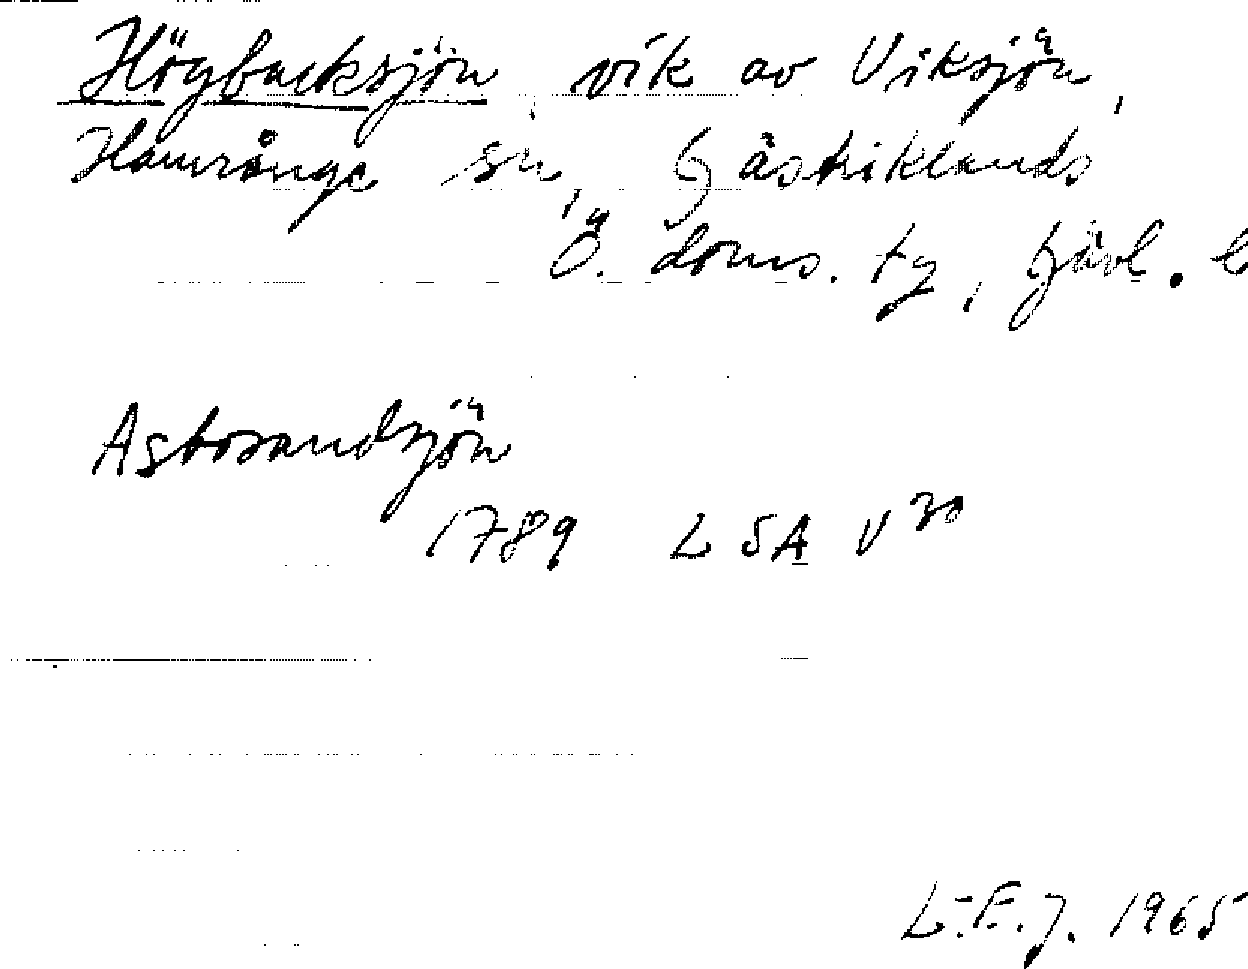 Högbacksjön, vik av Viksjön,
Hamrånge sn, Gästriklands
Ö. doms. tg, Gävl. l
Astosandsjön
1789 LSA V 30
L.E.J. 1965